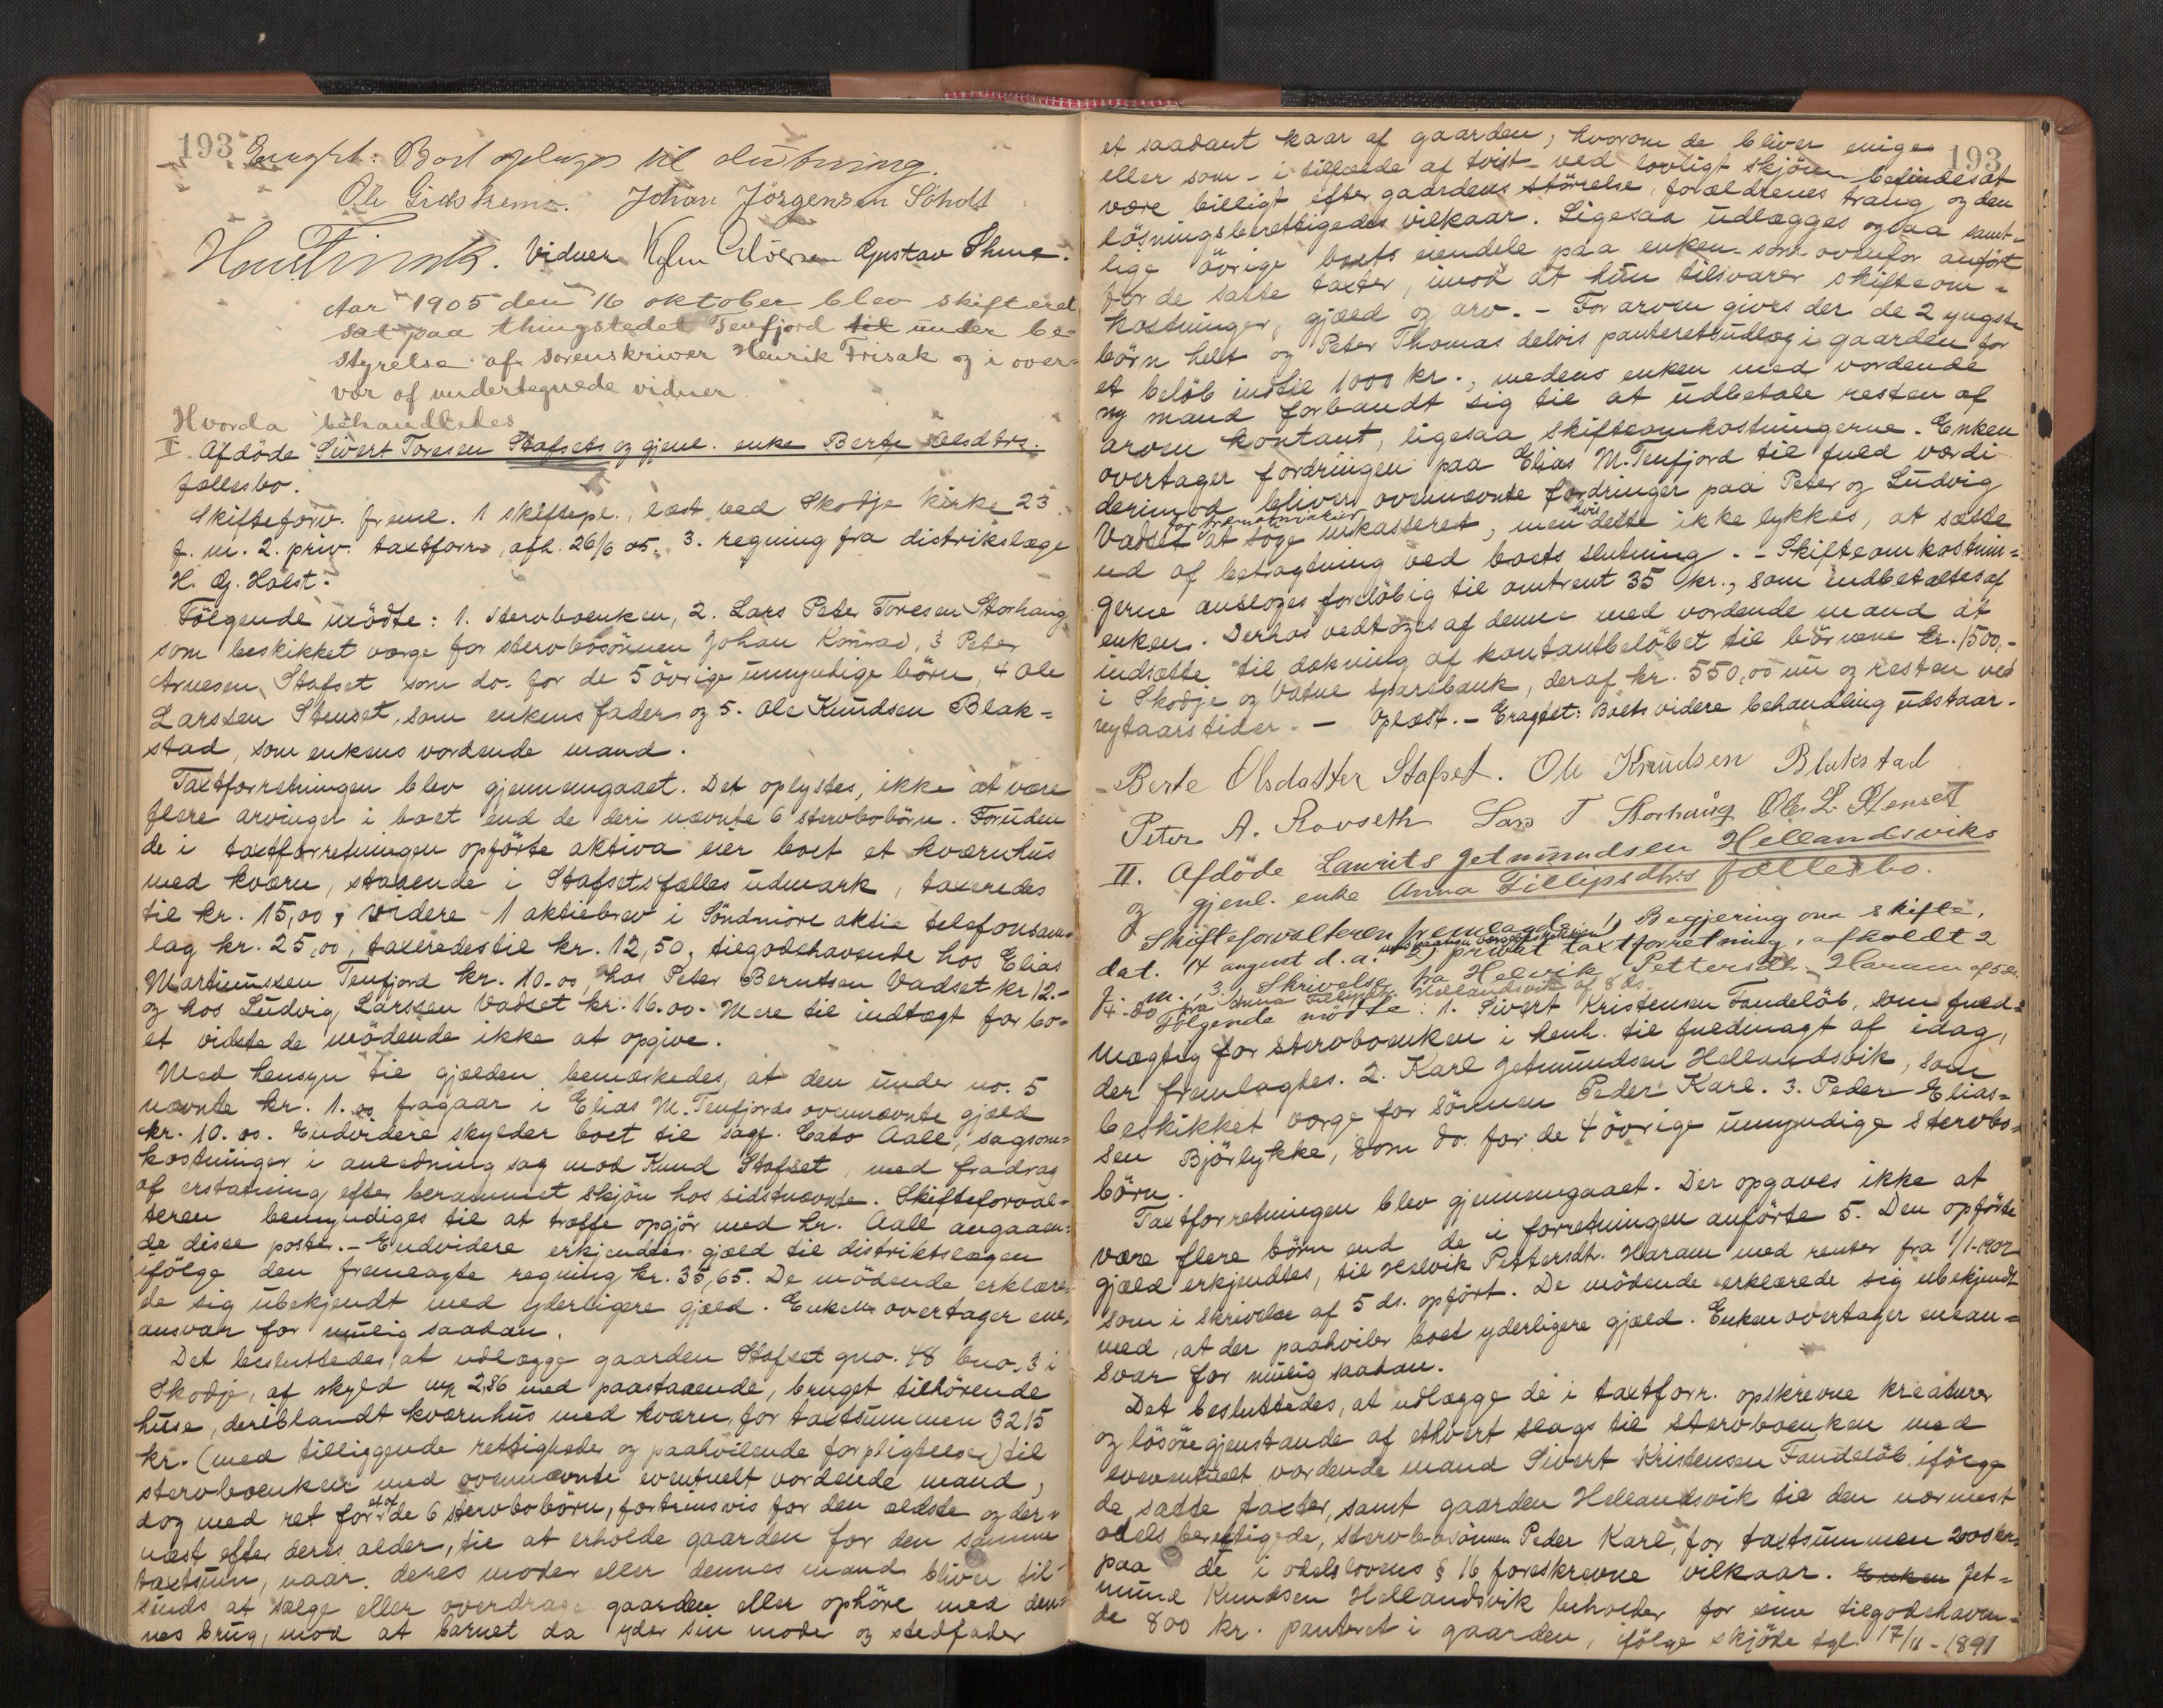 193
Eragtet: Boet oplages til slutning.
Ole Gidskemo. Johan Jörgensen Scholt
Hen Frisak. Vidner Gustav
Aar 1905 den 16 oktober blev skifteret
sat paa thingstedet Tenfjord til under be-
styrelse af sorenskriver Henrik Frisak og i over-
vær af undertegnede vidner.
Hvorda behandledes
I. Afdöde Sivert Toresen Stafsets og gjenl. enke Berte Olsdtrs.
fællesbo.
Skifteforv. freml. 1 skiftepl., læst ved Skodje kirke 23
f. m. 2. priv. taxtforr., afh. 26/6 05. 3. regning fra distriktslæge
H. G. Holst.
Fölgende mödte: 1. stervboenken, 2. Lars Peter Toresen Storhaug
som beskikket værge for stervbosönnen Johan Konrad, 3 Peter
Arnesen Stafset som do. for de 5 övrige umyndige börn, 4 Ole
Larssen Stenset, som enkens fader og 5. Ole Knudsen Blak=
stad, som enkens vordende mand.
Taxtforretningen blev gjennemgaaet. Det oplystes, ikke at være
flere arvinger i boet end de deri nævnte 6 stervbobörn. Foruden
de i taxtforretningen opförte aktiva eier boet et kværnhus
med kværn, staaende i Stafsets fælles udmark, taxeredes
til kr. 15,00, videre 1 aktiebrev i Söndmöre aktie telefonsam-
lag kr. 25,00, taxeredes til kr. 12,50, tilgodehavende hos Elias
Martinussen Tenfjord kr. 10.00, hos Peter Berntsen Vadset kr 12.-
og hos Ludvig Larssen Vadset kr. 16.00. Mere til indtægt for bo-
et vidste de mödende ikke at opgive.
Med hensyn til gjælden bemærkedes, at den under no. 5
nævnte kr. 1.00 fragaar i Elias M. Tenfjords ovennævnte gjæld
kr. 10.00. Endvidere skylder boet til sagf. Cato Aall, sagsom=
kostninger i anledning sag mod Knud Stafset, med fradrag
af erstatning efter berammet skjön hos sidstnævnte. Skifteforval-
teren bemyndiges til at træffe opgjör med hr. Aall angaaen=
de disse poster. - Endvidere erkjendtes gjæld til distriktslægen
ifölge den fremlagte regning kr. 35,65. De mödende erklære-
de sig ubekjendt med yderligere gjæld. Enken overtager ene-
ansvar for mulig saadan.
Det besluttedes at udlægge gaarden Stafset gno. 48 bno. 3 i
Skodje, af skyld mk 2,86 med paastaaende, bruget tilhörende
huse, deriblandt kværnhus med kværn, for taxtsummen 3215
kr. (med tilliggende rettigheder og paahvilende forpligtelser) til
stervboenken med ovennævnte eventuelt vordende mand,
dog med ret for et af de 6 stervbobörn, fortrinsvis for den ældste og der-
næst efter deres alder, til at erholde gaarden for den samme
taxtsum, naar deres moder eller dennes mand bliver til-
sinds at sælge eller overdrage gaarden eller ophöre med den-
nes brug, mod at barnet da yder sin moder og stedfader
193
et saadant kaar af gaarden, hvorom de bliver enige
eller som - i tilfælde af tvist - ved lovligt skjön befindes at
være billigt efter gaardens störrelse, forældrenes trang og den
lösningsberettigedes vilkaar. Ligesaa udlægges ogsaa samt-
lige övrige boets eiendele paa enken - som ovenfor anfört
for de satte taxter, imod at hun tilsvarer skifteom-
kostninger, gjæld og arv. - For arven gives der de 2 yngste
börn helt og Peter Thomas delvis panteretsudlæg i gaarden for
et belöb indtil 1000 kr., medens enken med vordende
ny mand forbandt sig til at udbetale resten af
arven kontant, ligesaa skifteomkostningerne. Enken
overtager fordringen paa Elias M. Tenfjord til fuld værdi
derimod bliver ovennævnte fordringer paa Peter og Ludvig
Vadset at söge inkasseret, men hvis dette ikke lykkes, at sætte
ud af betragtning ved boets slutning. - Skifteomkostnin=
gerne ansloges forelöbig til omtrent 35 kr., som indbetaltes af
enken. Derhos vedtoges af denne med vordende mand at
indsætte til dækning af kontantbelöbet til börnene kr. 1500,-
i Skodje og Vatne sparebank, deraf kr. 550,00 nu og resten ved
nytaarstider. - Oplæst. - Eragtet: Boets videre behandling udstaar.
Berte Olsdatter Stafset. Ole Knudsen Blakstad
Peter A. Rovseth Lars T Storhaug Ole L. Stenset
II. Afdöde Laurits Jetmundsen Hellandsviks
og gjenl. enke Anna Fillipsdtrs fællesbo.
Skifteforvalteren fremlagde 1) Begjæring om skifte,
dat. 14 august d. a. 2) privat taxtforretning, afholdt 2
f. m., 3. Skrivelse fra Helvik Pettersdtr. Haram af 5 ds.
4. do fra Anna Fillipsdtr. Hellandsvik af 8 ds.
Fölgende mödte: 1. Sivert Kristensen Fandelöb, som fuld=
mægtig for stervboenken i henh. til fuldmagt af idag,
der fremlagtes. 2. Karl Jetmundsen Hellandsvik, som
beskikket værge for sönnen Peder Karl. 3. Peder Elias=
sen Björlykke, som do. for de 4 övrige umyndige stervbo-
börn.
Taxtforretningen blev gjennemgaaet. Der opgaves ikke at
være flere börn end de i forretningen anförte 5. Den opförte
gjæld erkjendtes, til Helvik Pettersdtr. Haram med renter fra 1/1-1902
som i skrivelse af 5 ds. opfört. De mödende erklærede sig ubekjendt
med, at der paahviler boet yderligere gjæld. Enken overtager enean=
svar for mulig saadan.
Det besluttedes, at udlægge de i taxtforr. opskrevne kreaturer
og lösöregjenstande af ethvert slags til stervboenken med
eventuelt vordende mand Sivert Kristensen Fandelöb, ifölge
de satte taxter, samt gaarden Hellandsvik til den nærmest
odelsberettigede, stervbosönnen Peder Karl, for taxtsummen 2000 kr.
paa de i odelslovens § 16 foreskrevne vilkaar. Enken Jet=
mund Knudsen Hellandsvik beholder for sine tilgodehaven-
de 800 kr. panteret i gaarden, ifölge skjöde tgl. 17/11-1891